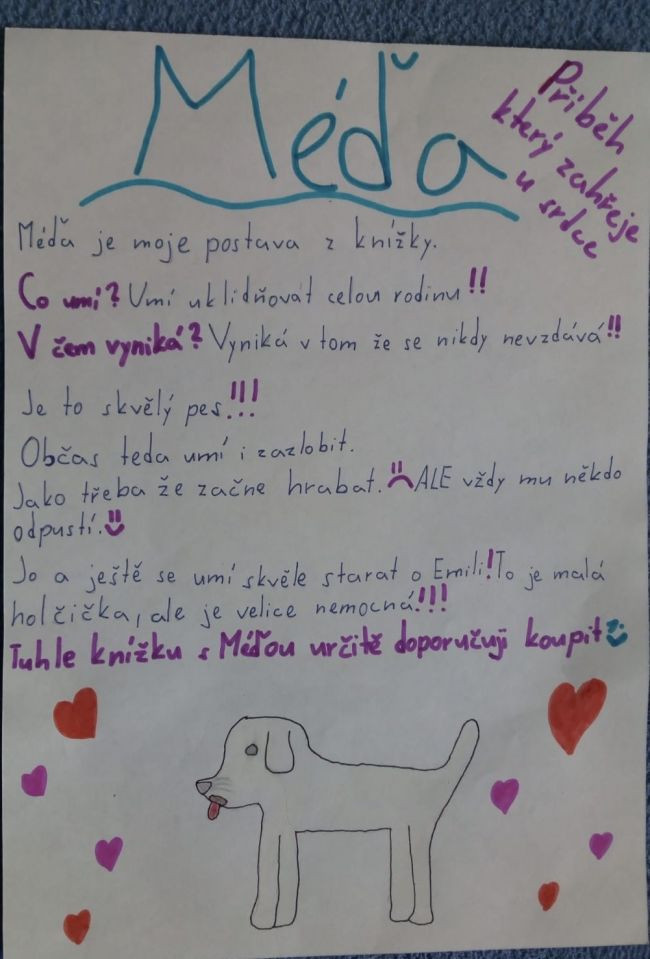 Méďa
Příběh
který zahřeje
u srdce
Méďa je moje postava z knížky.
Co umí? Umí uklidňovat celou rodinu!!
V čem vyniká? Vyniká v tom že se nikdy nevzdává!!
Je to skvělý pes!!!
Občas teda umí i zazlobit.
Jako třeba že začne hrabat. ALE vždy mu někdo
odpustí.
Jo a ještě se umí skvěle starat o Emili! To je malá
holčička, ale je velice nemocná!!!
Tuhle knížku s Méďou určitě doporučuji koupit